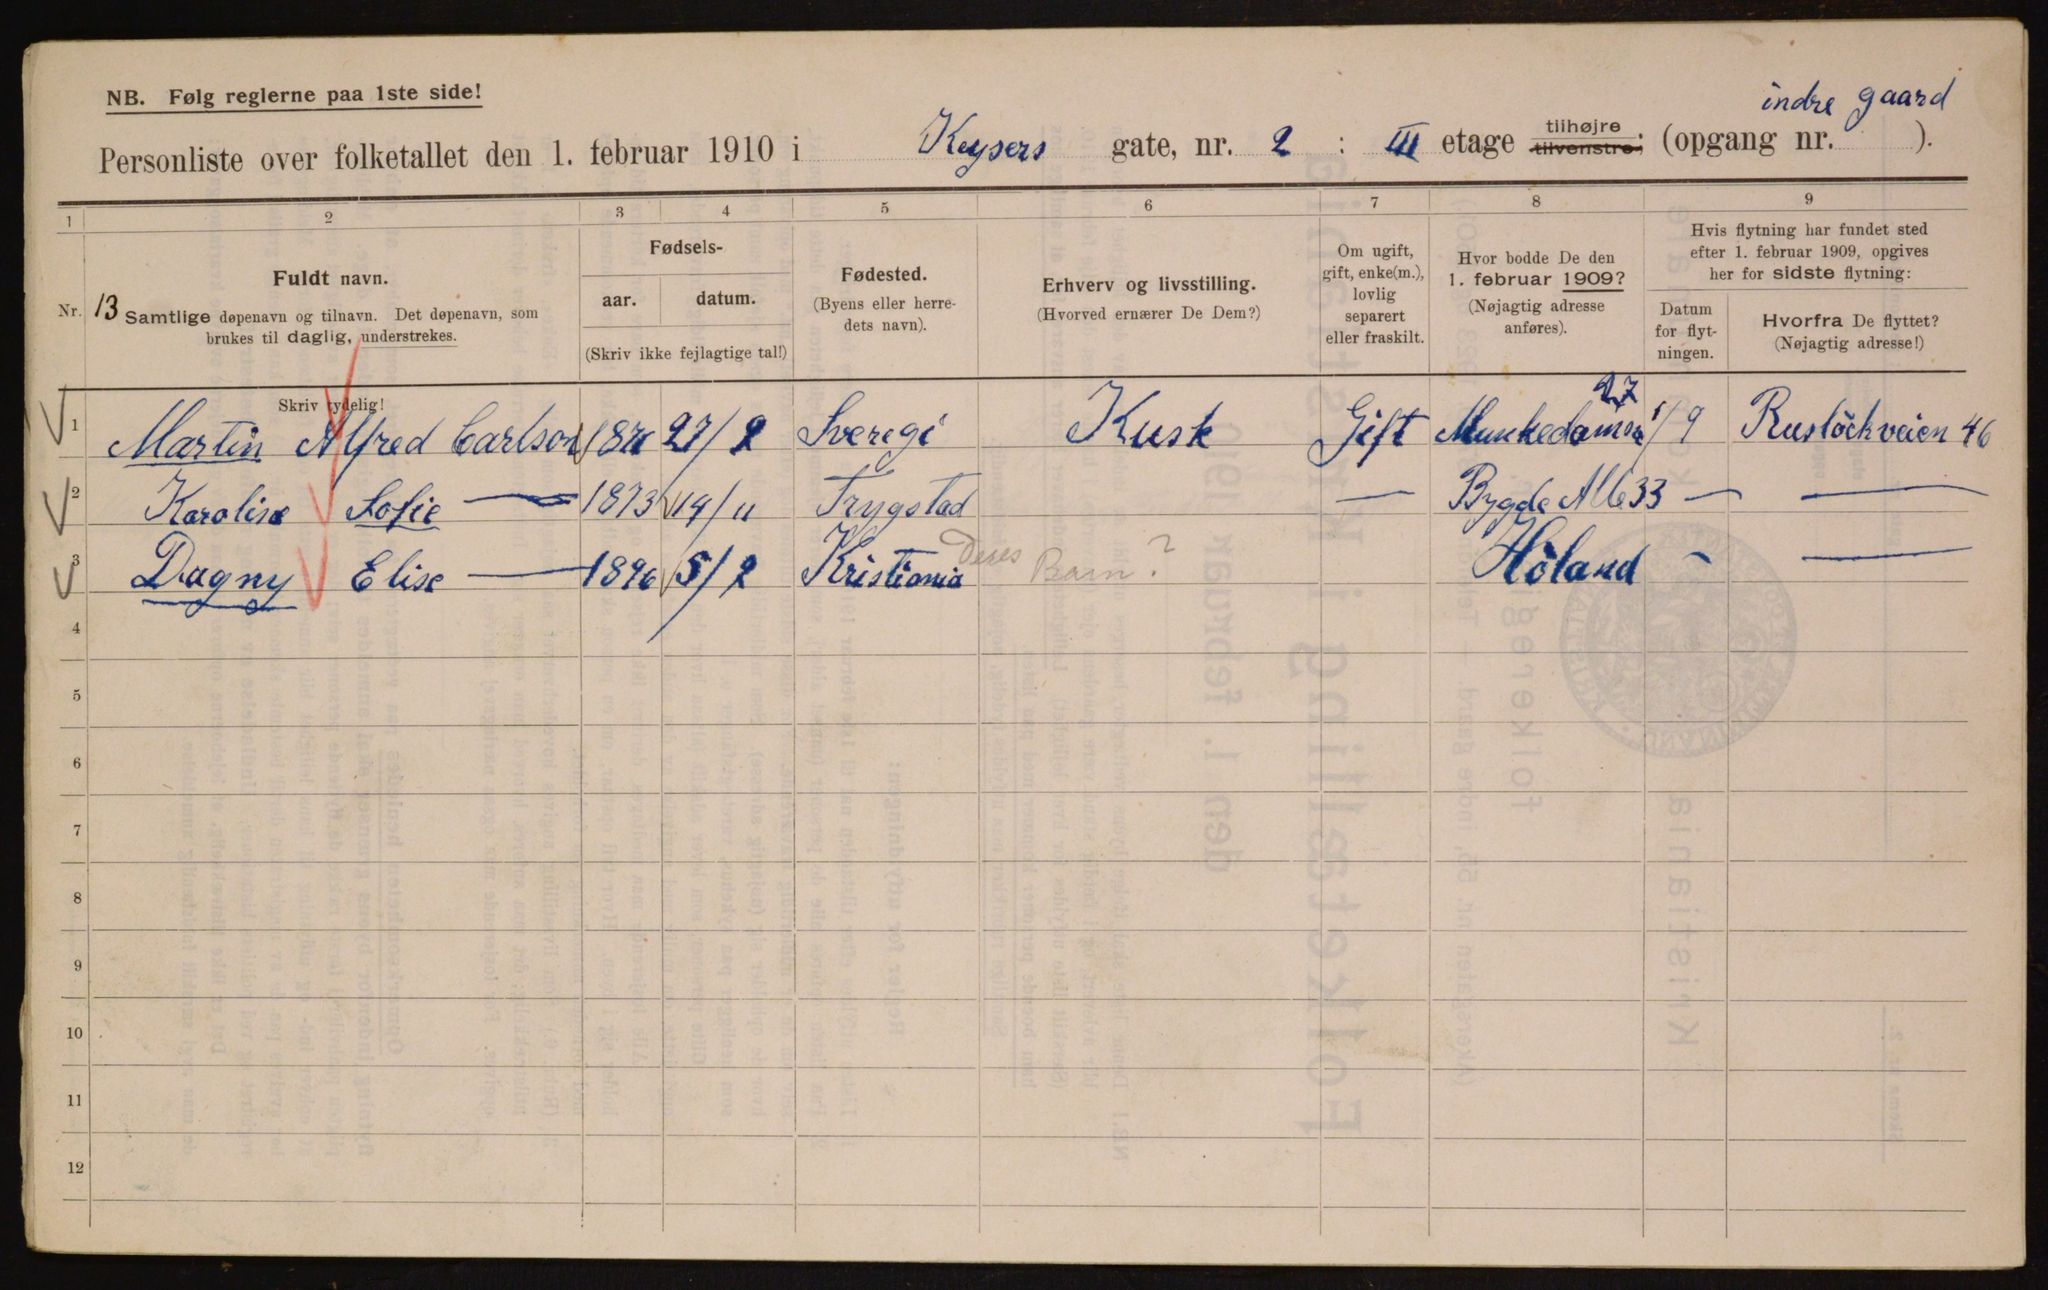 NB. Følg reglerne paa 1ste side!
indre gaard
Personliste over folketallet den 1. februar 1910 i Keysers gate, nr. 2 : III etage tilhøjre tilvenstre; (opgang nr. ).
1 2 3 4 5 6 7 8 9
Nr. 13
Fuldt navn.
Samtlige døpenavn og tilnavn. Det døpenavn, som
brukes til daglig, understrekes.
Fødsels-
aar. datum.
(Skriv ikke fejlagtige tal!)
Fødested.
(Byens eller herre-
dets navn).
Erhverv og livsstilling.
(Hvorved ernærer De Dem?)
Om ugift,
gift, enke(m.),
lovlig
separert
eller fraskilt.
Hvor bodde De den
1. februar 1909?
(Nøjagtig adresse
anføres).
Hvis flytning har fundet sted
efter 1. februar 1909, opgives
her for sidste flytning:
Datum
for flyt-
ningen.
Hvorfra De flyttet?
(Nøjagtig adresse!)
Skriv tydelig!
1 Martin Alfred Carlson 27/2 Sveregi Kusk Gift 27 1/9 Rusløckveien 46
2 Karolise Sofie — 1873 14/11 Trygstad — Bygdø Alle 33 — —
3 Dagny Elise — 1896 5/2 Kristiania Deres Barn? Høland — —
4
5
6
7
8
9
10
11
12